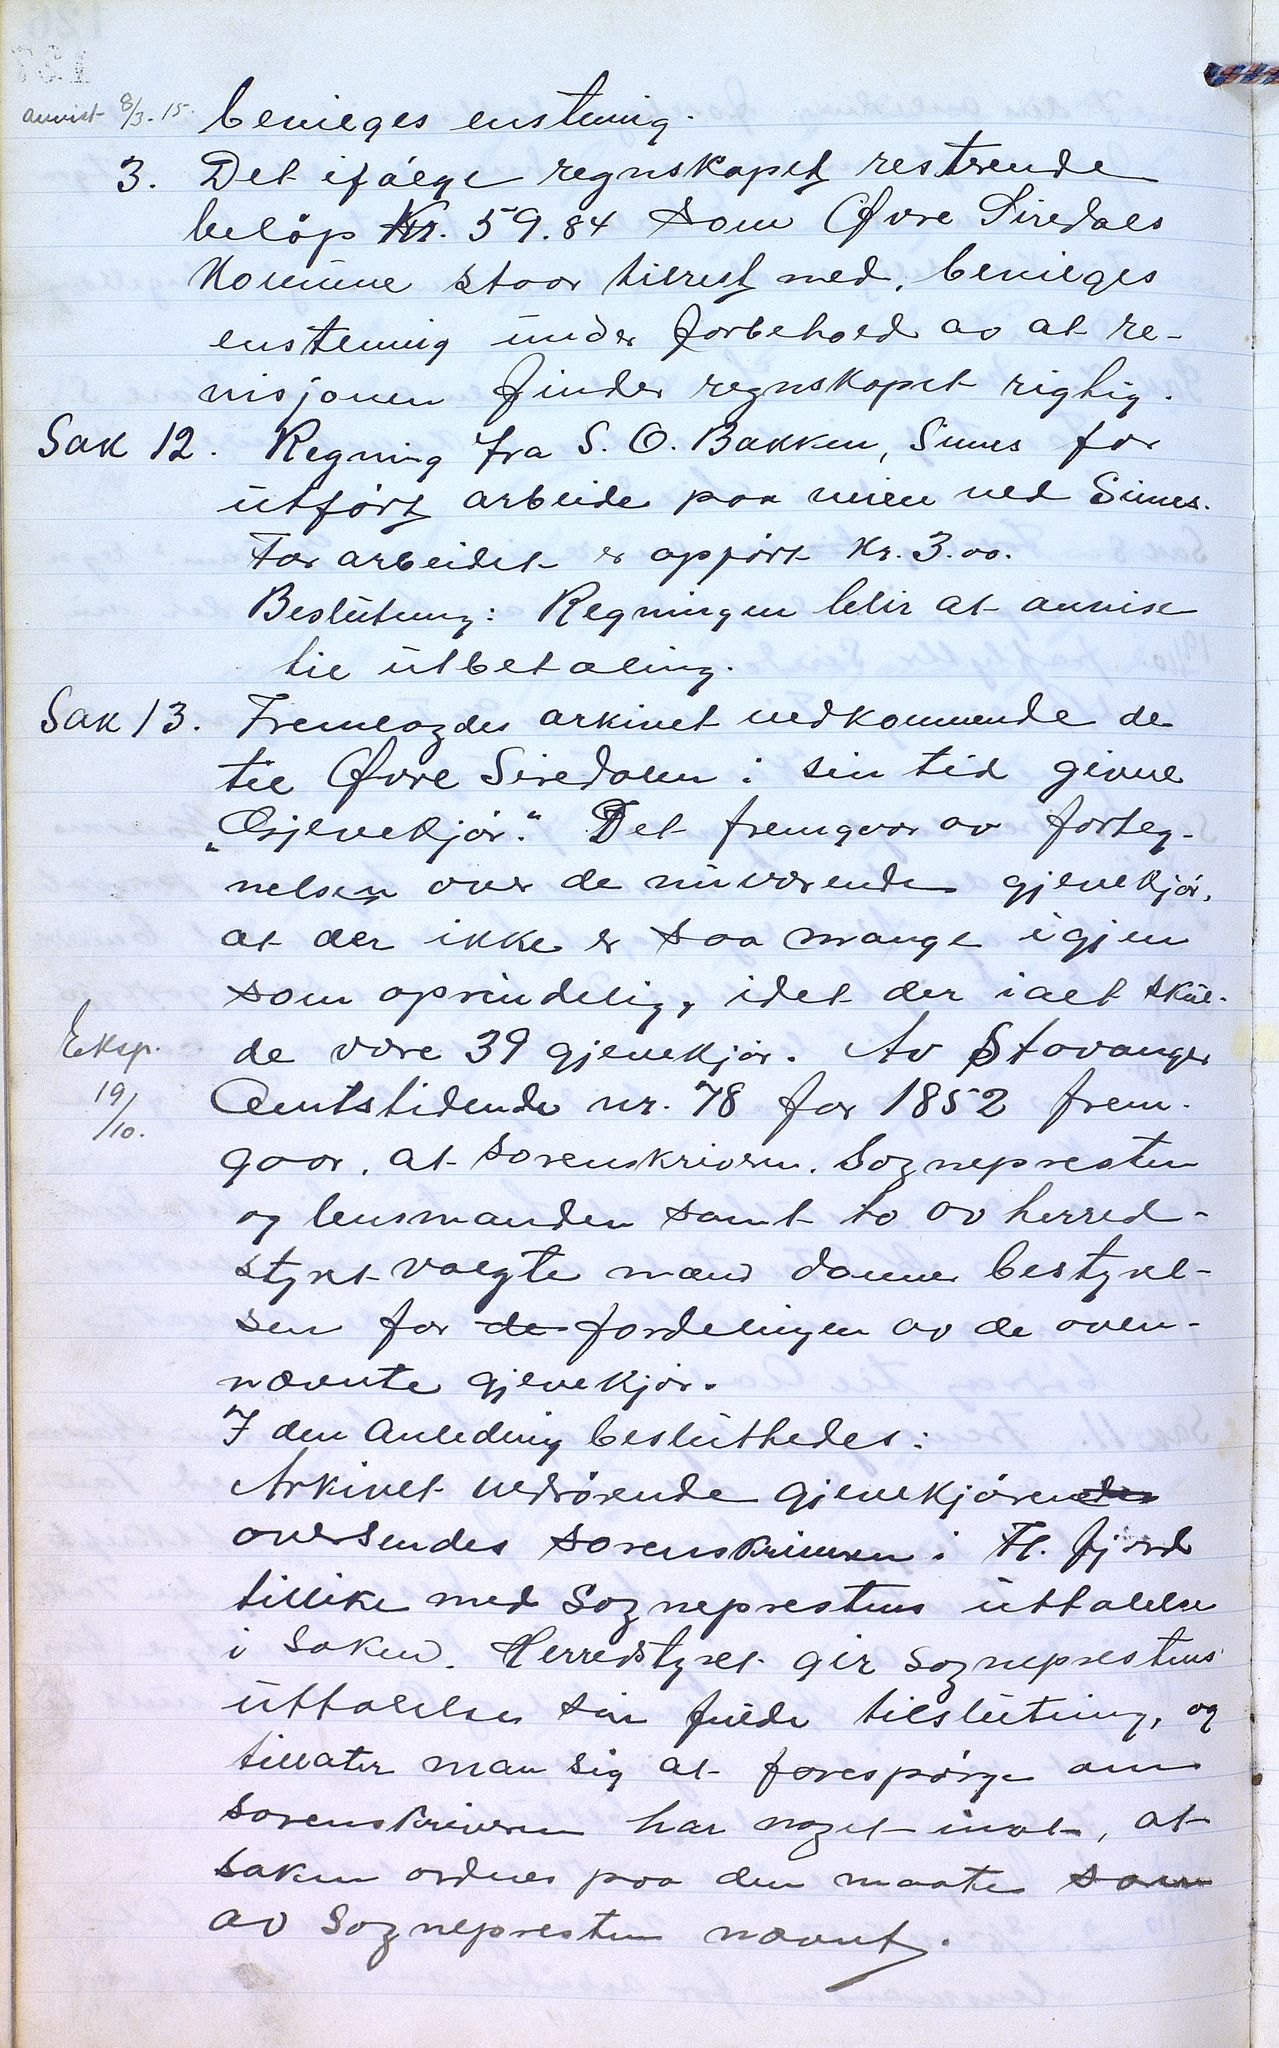 anvist 8/3-15. bevilges enstemig.
3. Det ifølge regnskapet restrende
beløp Kr. 59.84 som Øvre Siredals
Komune staar tilrest med, bevilges
enstemig under forbehold av at re-
visjonen finder regnskapet rigtig.
Sak 12. Regning fra S. O. Bakken, Sinnes for
utført arbeide paa veien ved Sinnes.
For arbeidet er opført Kr. 3.00.
Beslutning: Regningen blir at anvise
til utbetaling.
Sak 13. Fremlagdes arkivet vedkommende de
til Øvre Siredalen i sin tid givne
"Gjevekjør." Det fremgaar av forteg-
nelsen over de nuværende gjevekjør,
at der ikke er saa mange igjen
som oprindelig, idet der ialt skul-
Eksp. de være 39 gjevekjør. Av Stavanger
19/10. Amtstidende nr. 78 for 1852 frem-
gaar, at sorenskriveren, Sognepresten
og lensmanden samt to av herred-
styret valgte mænd danner bestyrel-
sen for de fordelingen av de oven-
nævnte gjevekjør.
I den anledning besluttedes:
Arkivet vedrørende gjevekjørende
oversendes sorenskriveren i Fl. fjord
tillike med Sogneprestens uttalelse
i saken. Herredstyret gir sogneprestens
uttalelse sin fulde tilslutning, og
tillater man sig at forespørge om
sorenskriveren har noget imot, at
saken ordnes paa den maate som
av Sognepresten nævnt.